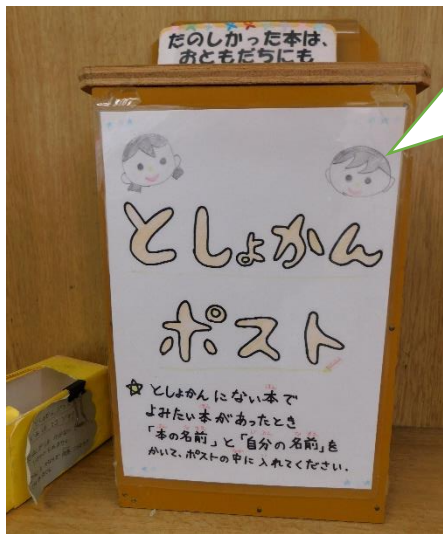 たのしかった本は、
おともだちにも
としょかん
ポスト
☆ としょかんにない本で
よみたい本があったとき
「本の名前」と「自分の名前」を
かいて、ポストの中に入れてください.